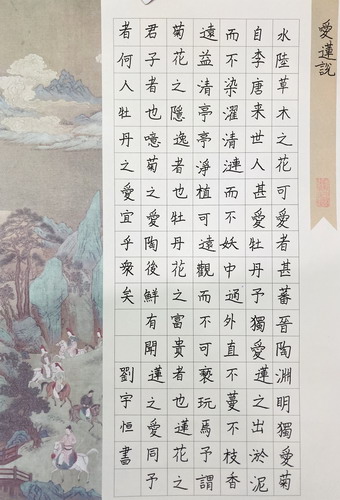 愛蓮說
水陸草木之花可愛者甚蕃晉陶淵明獨愛菊
自李唐来世人甚愛牡丹予獨愛蓮之出淤泥
而不染濯清漣而不妖中通外直不蔓不枝香
遠益清亭亭淨植可遠觀而不可褻玩焉予謂
菊花之隱逸者也牡丹花之富貴者也蓮花之
君子者也噫菊之愛陶後鮮有聞蓮之愛同予
者何人牡丹之愛宜乎衆矣 劉宇恒書